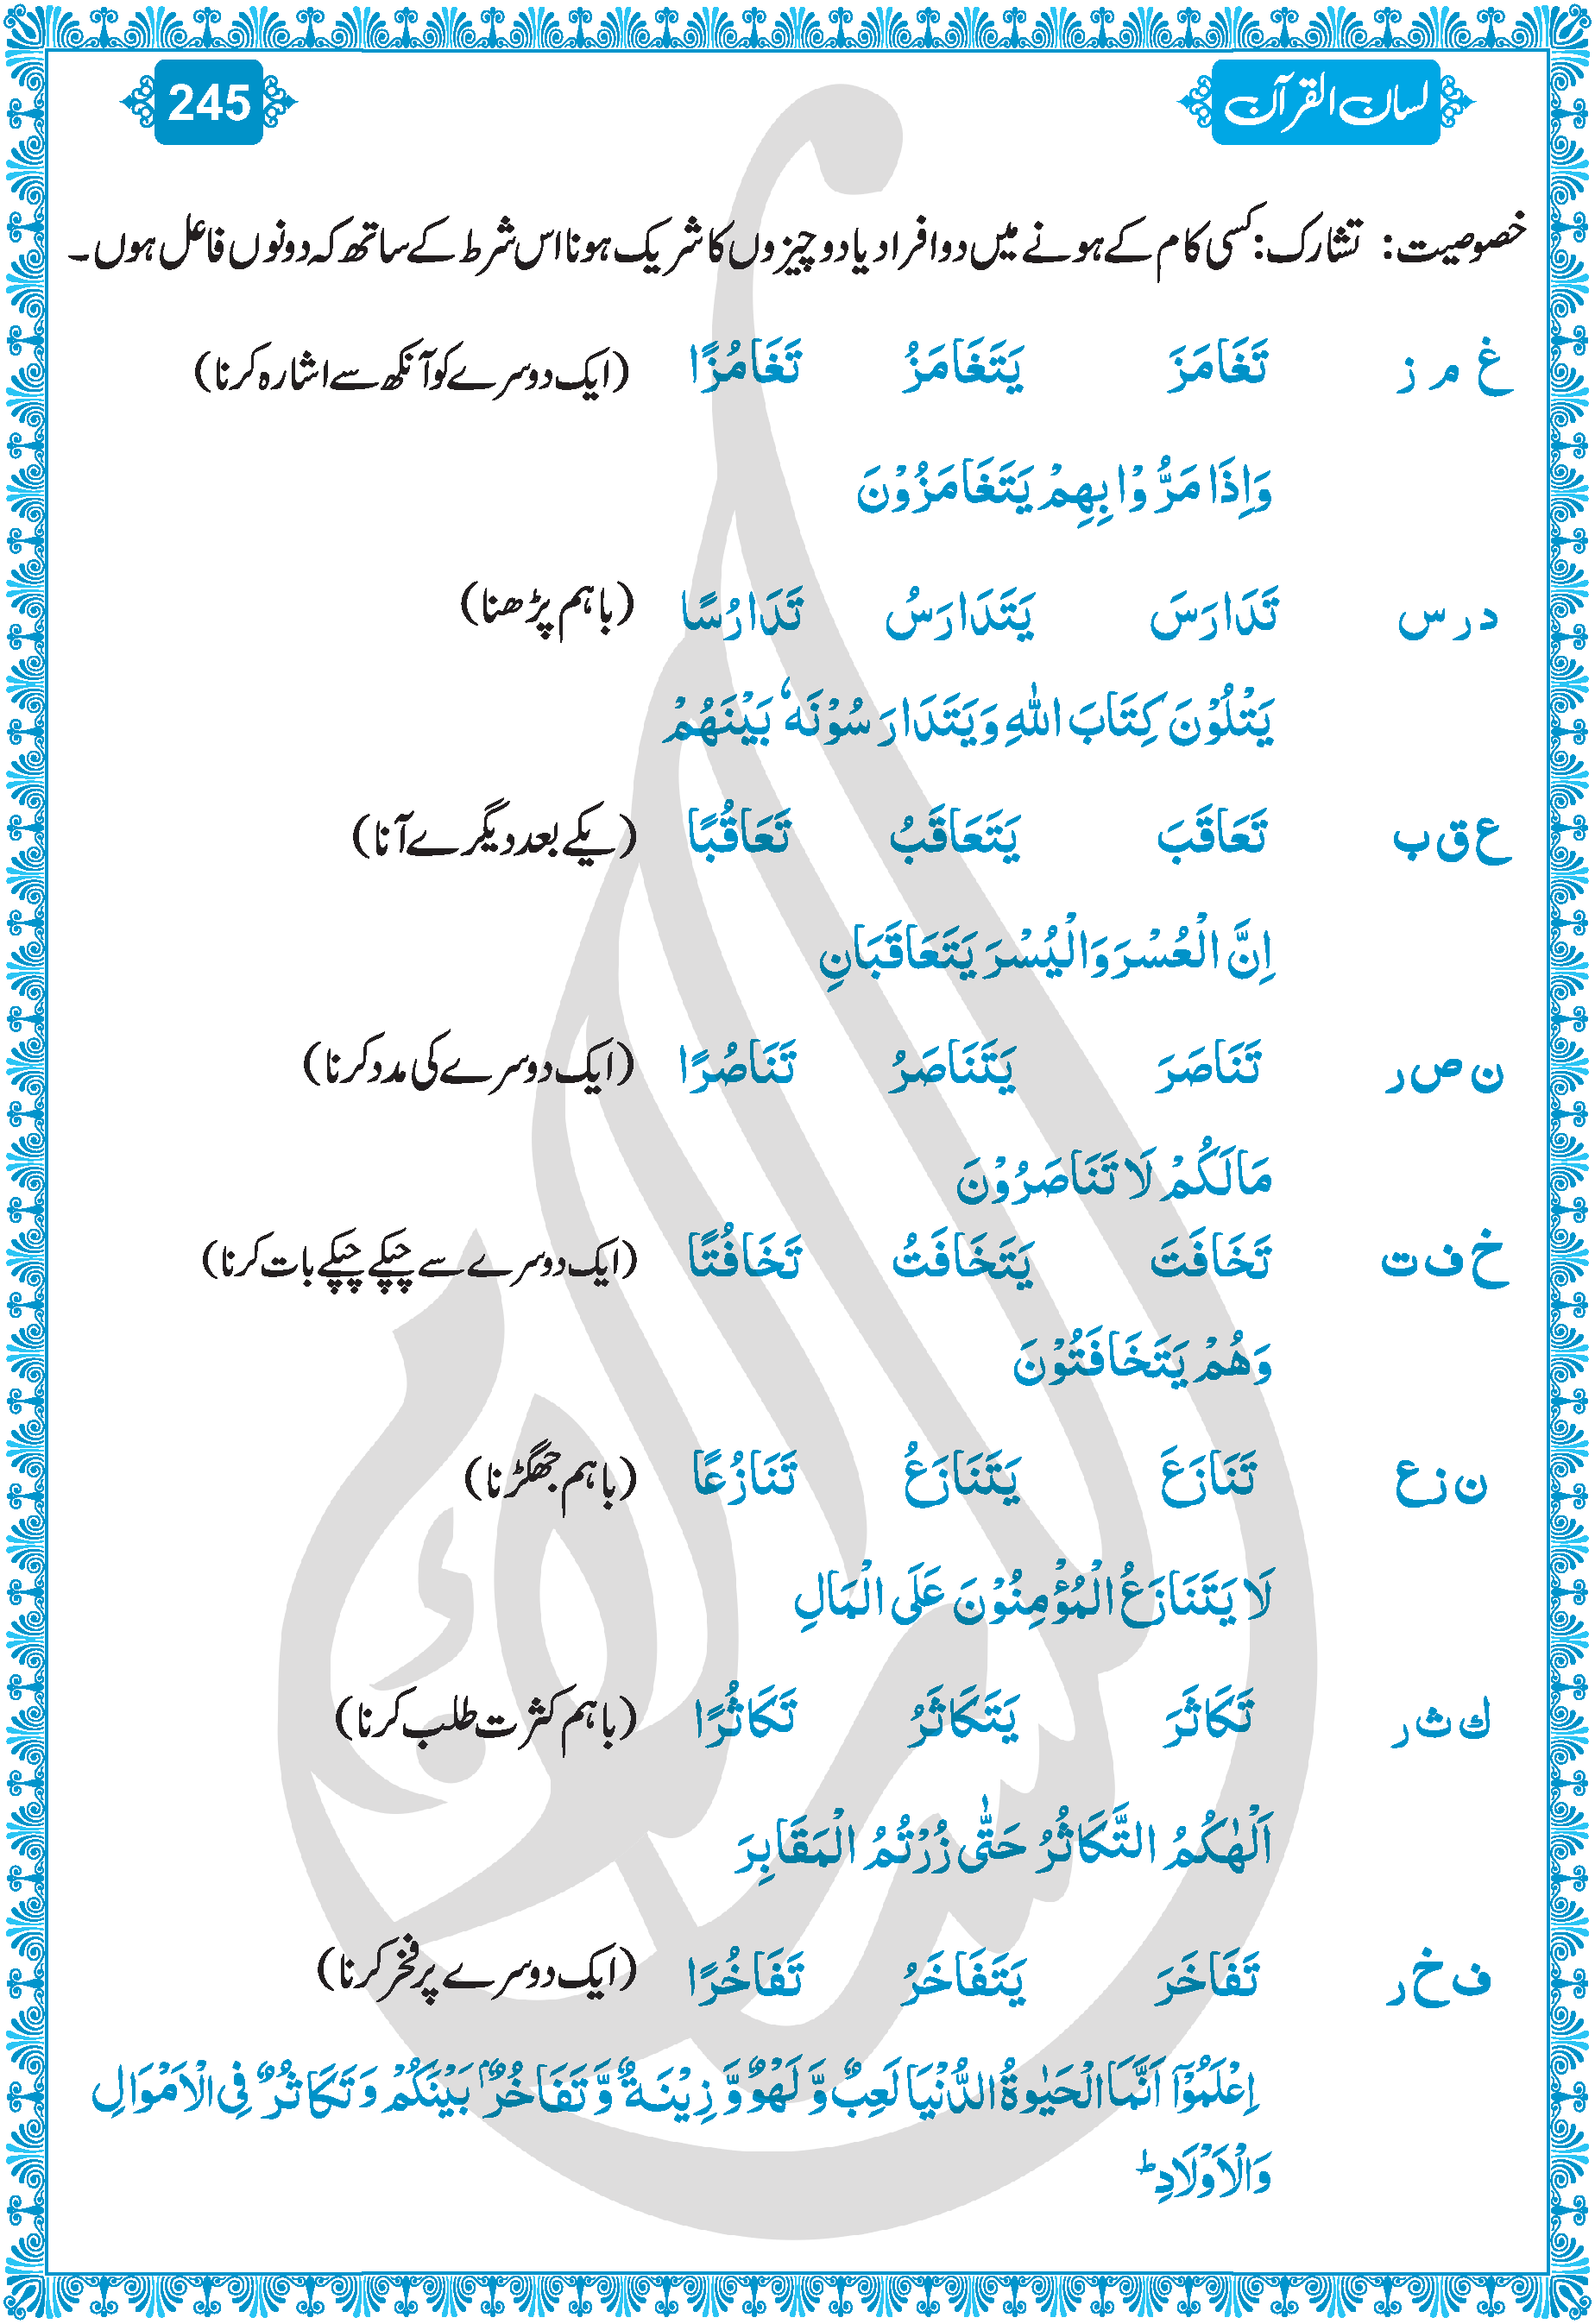 لسان القرآن
245
خصوصیت: تشارک: کسی کام کے ہونے میں دو افراد یا دو چیزوں کا شریک ہونا اس شرط کے ساتھ کہ دونوں فاعل ہوں۔
غ م ز تَغَامَزَ يَتَغَامَزُ تَغَامُزًا (ایک دوسرے کو آنکھ سے اشارہ کرنا)
وَاِذَا مَرُّوْا بِهِمْ يَتَغَامَزُوْنَ
د ر س تَدَارَسَ يَتَدَارَسُ تَدَارُسًا (باہم پڑھنا)
يَتْلُوْنَ كِتَابَ اللهِ وَيَتَدَارَسُوْنَهٗ بَيْنَهُمْ
ع ق ب تَعَاقَبَ يَتَعَاقَبُ تَعَاقُبًا (یکے بعد دیگرے آنا)
اِنَّ الْعُسْرَ وَالْيُسْرَ يَتَعَاقَبَانِ
ن ص ر تَنَاصَرَ يَتَنَاصَرُ تَنَاصُرًا (ایک دوسرے کی مدد کرنا)
مَالَكُمْ لَا تَنَاصَرُوْنَ
خ ف ت تَخَافَتَ يَتَخَافَتُ تَخَافُتًا (ایک دوسرے سے چپکے چپکے بات کرنا)
وَهُمْ يَتَخَافَتُوْنَ
ن ز ع تَنَازَعَ يَتَنَازَعُ تَنَازُعًا (باہم جھگڑنا)
لَا يَتَنَازَعُ الْمُؤْمِنُوْنَ عَلَى الْمَالِ
ك ث ر تَكَاثَرَ يَتَكَاثَرُ تَكَاثُرًا (باہم کثرت طلب کرنا)
اَلْهٰكُمُ التَّكَاثُرُ حَتّٰى زُرْتُمُ الْمَقَابِرَ
ف خ ر تَفَاخَرَ يَتَفَاخَرُ تَفَاخُرًا (ایک دوسرے پر فخر کرنا)
اِعْلَمُوْٓا اَنَّمَا الْحَيٰوةُ الدُّنْيَا لَعِبٌ وَّ لَهْوٌ وَّ زِيْنَةٌ وَّ تَفَاخُرٌۢ بَيْنَكُمْ وَ تَكَاثُرٌ فِى الْاَمْوَالِ
وَالْاَوْلَادِ ؕ